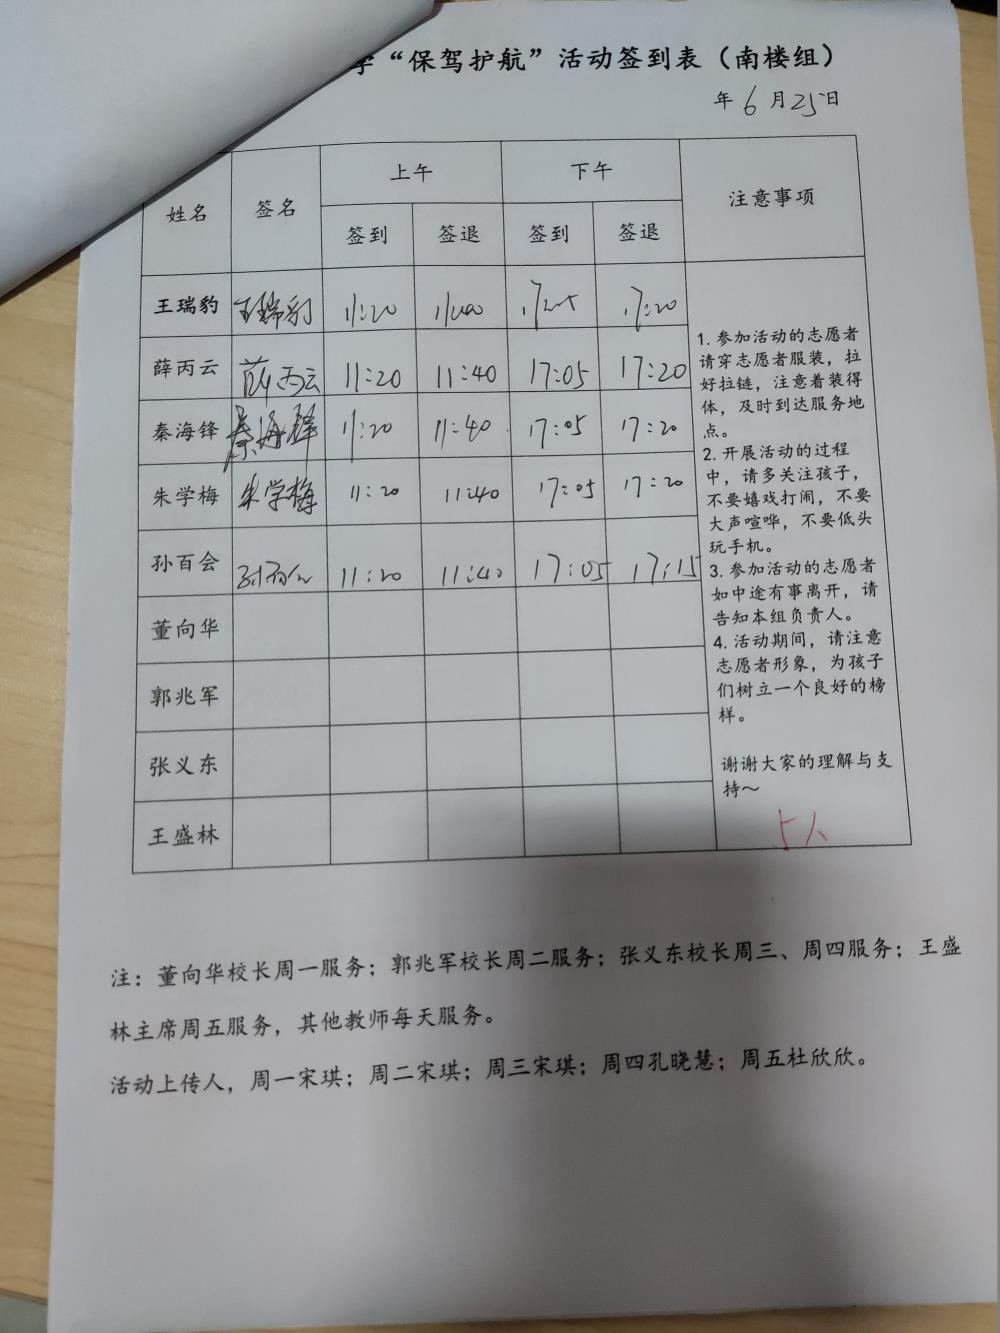 学“保驾护航”活动签到表（南楼组）
年 6 月 25 日
姓名 签名 上午 下午 注意事项
签到 签退 签到 签退
王瑞豹 王瑞豹 11:20 17:20
薛丙云 薛丙云 11:20 11:40 17:05 17:20
秦海锋 秦海锋 11:20 11:40 17:05 17:20
朱学梅 朱学梅 11:20 11:40 17:05 17:20
孙百会 孙百会 11:20 11:40 17:05 17:15
董向华
郭兆军
张义东
王盛林
1. 参加活动的志愿者
请穿志愿者服装，拉
好拉链，注意着装得
体，及时到达服务地
点。
2. 开展活动的过程
中，请多关注孩子，
不要嬉戏打闹，不要
大声喧哗，不要低头
玩手机。
3. 参加活动的志愿者
如中途有事离开，请
告知本组负责人。
4. 活动期间，请注意
志愿者形象，为孩子
们树立一个良好的榜
样。
谢谢大家的理解与支
持～
5人
注：董向华校长周一服务；郭兆军校长周二服务；张义东校长周三、周四服务；王盛
林主席周五服务，其他教师每天服务。
活动上传人，周一宋琪；周二宋琪；周三宋琪；周四孔晓慧；周五杜欣欣。